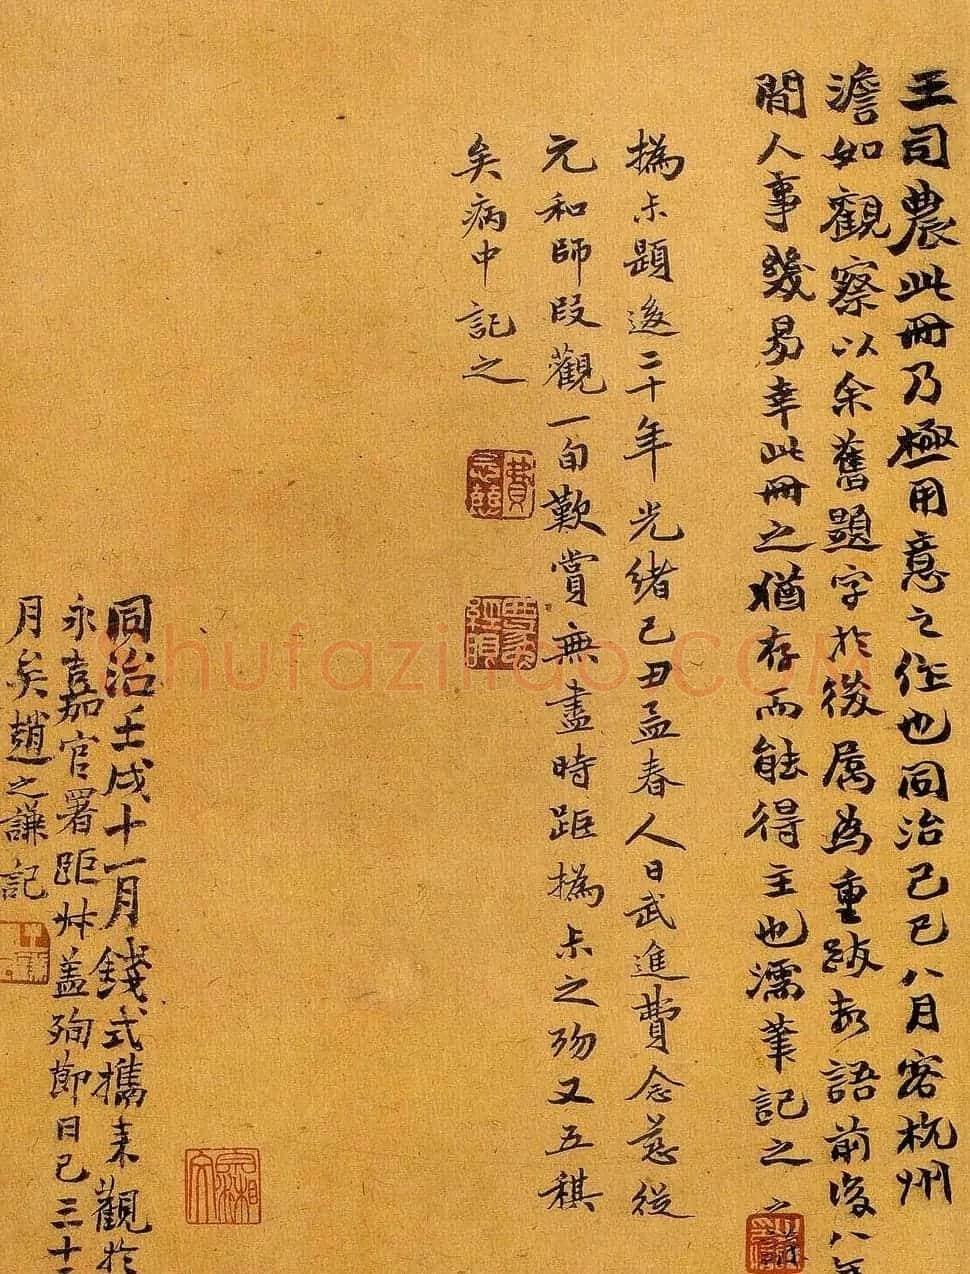 王司農此冊乃極用意之作也同治己巳八月客杭州
澹如觀察以余舊題字於後屬為重跋數語前後八年
間人事幾易幸此冊之猶存而能得主也濡筆記之 之謙
撝尗題後二十年光緒己丑孟春人日武進費念慈從
元和師叚觀一旬歎賞無盡時距撝尗之歿又五稘
矣病中記之
費念慈
同治壬戌十一月錢式攜来觀於
永嘉官署距艸蓋殉節日已三十
月矣趙之謙記
shufaziliao.COM